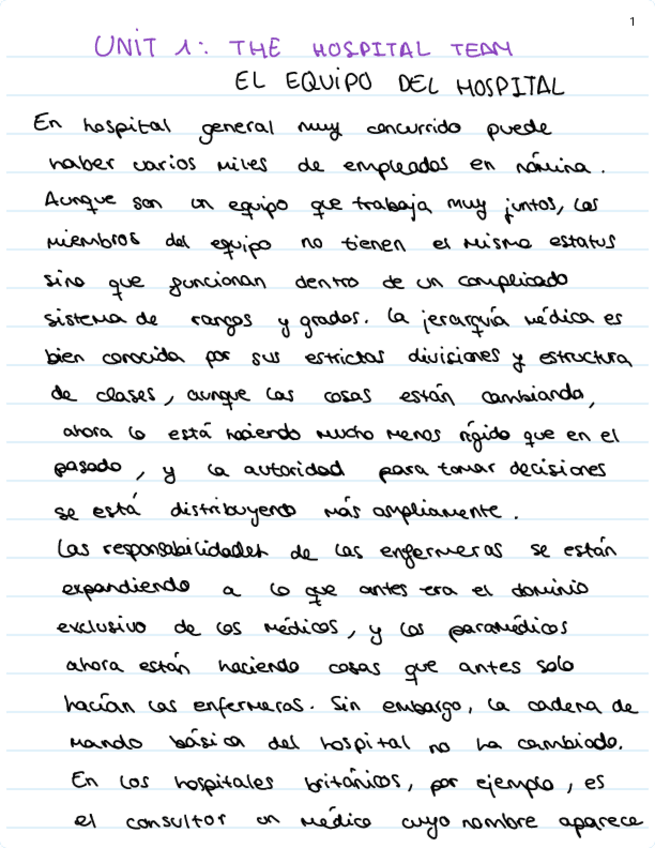 1
UNIT 1: THE HOSPITAL TEAM
EL EQUIPO DEL HOSPITAL
En hospital general muy concurrido puede
haber varios miles de empleados en nómina.
Aunque son un equipo que trabaja muy juntos, los
miembros del equipo no tienen el mismo estatus
sino que funcionan dentro de un complicado
sistema de rangos y grados. La jerarquía médica es
bien conocida por sus estrictas divisiones y estructura
de clases, aunque las cosas están cambiando,
ahora lo está haciendo mucho menos rígido que en el
pasado, y la autoridad para tomar decisiones
se está distribuyendo más ampliamente.
Las responsabilidades de las enfermeras se están
expandiendo a lo que antes era el dominio
exclusivo de los médicos, y los paramédicos
ahora están haciendo cosas que antes solo
hacían las enfermeras. Sin embargo, la cadena de
mando básica del hospital no ha cambiado.
En los hospitales británicos, por ejemplo, es
el consultor un médico cuyo nombre aparece